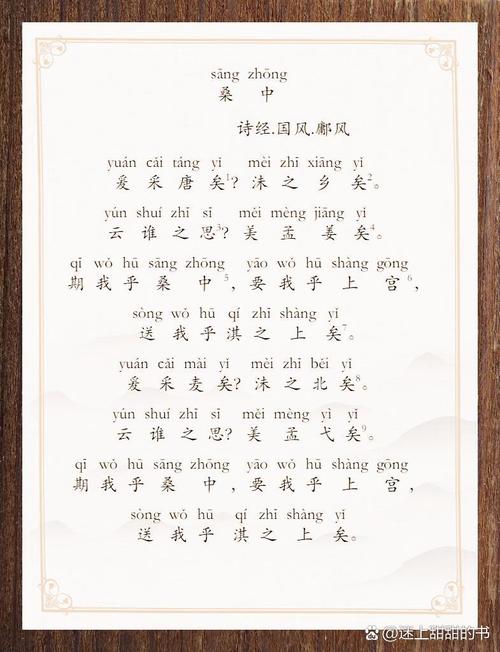 sāng zhōng
桑 中
诗经.国风.鄘风
yuán cǎi táng yǐ mèi zhī xiāng yǐ
爰采唐矣1?沬之乡矣2。
yún shuí zhī sī měi mèng jiāng yǐ
云谁之思3?美孟姜矣4。
qī wǒ hū sāng zhōng yāo wǒ hū shàng gōng
期我乎桑中5,要我乎上宫6,
sòng wǒ hū qí zhī shàng yǐ
送我乎淇之上矣7。
yuán cǎi mài yǐ mèi zhī běi yǐ
爰采麦矣?沬之北矣8。
yún shuí zhī sī měi mèng yì yǐ
云谁之思?美孟弋矣9。
qī wǒ hū sāng zhōng yāo wǒ hū shàng gōng
期我乎桑中,要我乎上宫,
sòng wǒ hū qí zhī shàng yǐ
送我乎淇之上矣。
@迷上甜甜的书